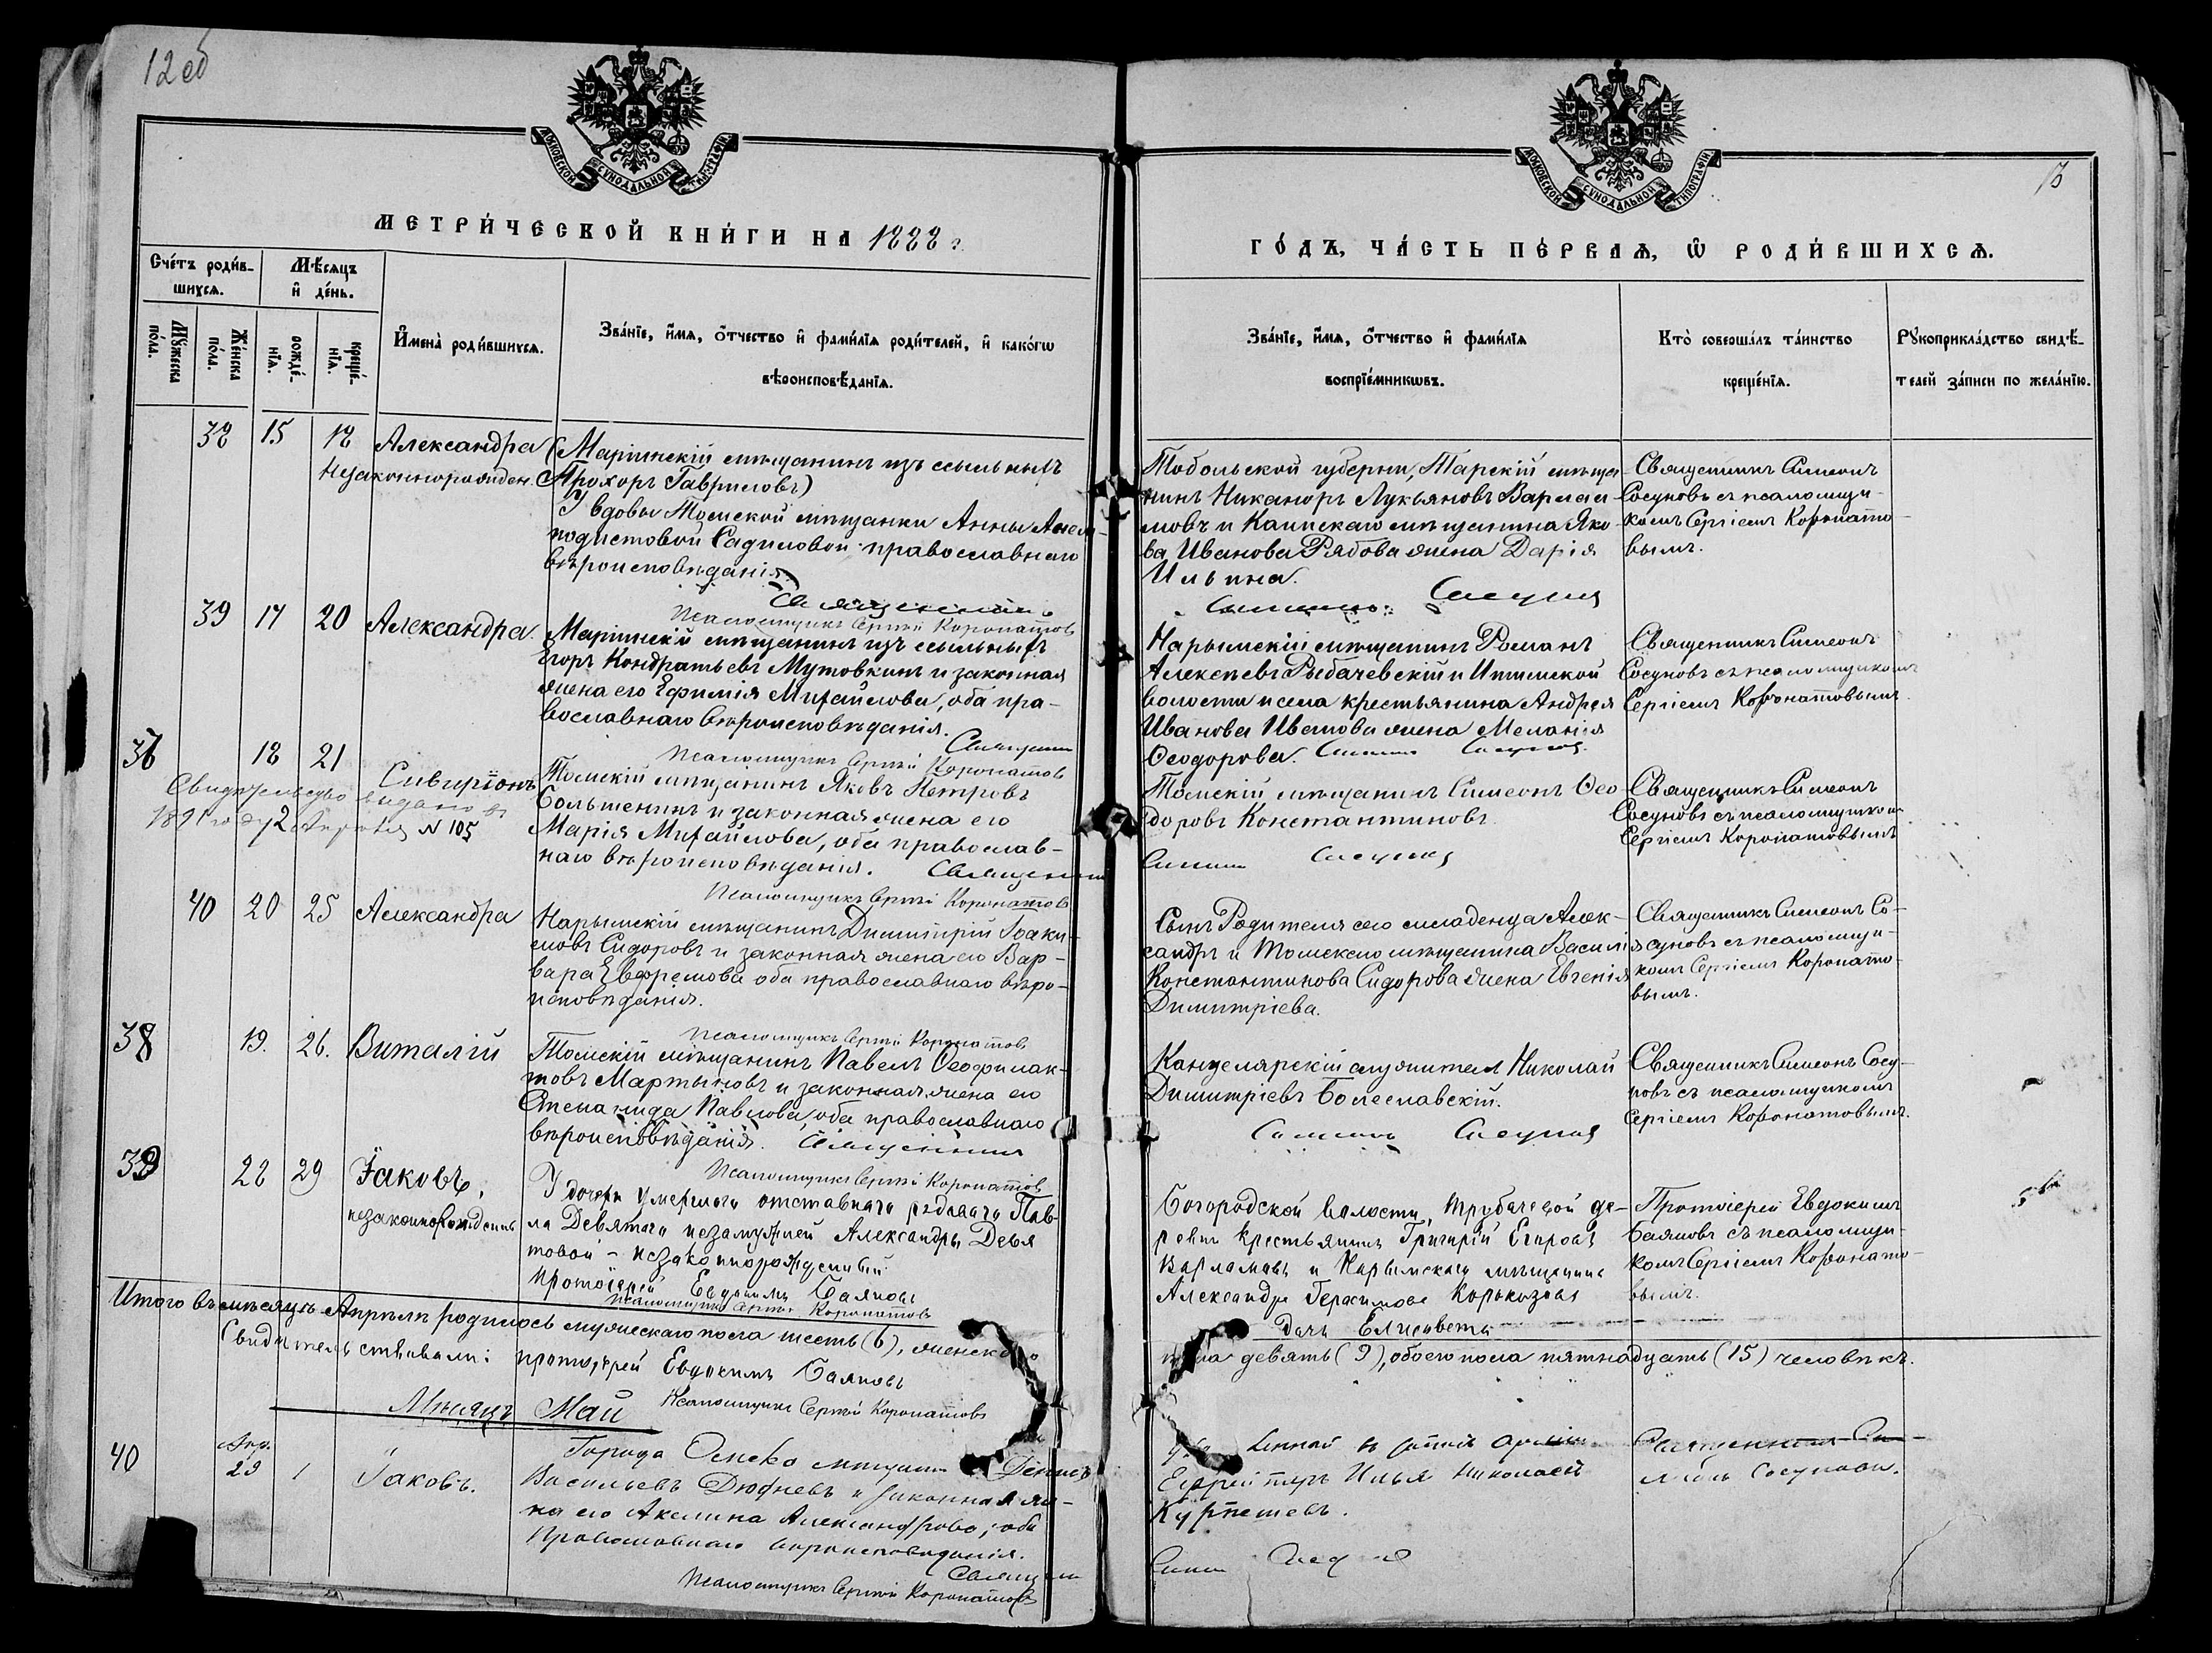 12об
МОСКОВСКОЙ СУНОДАЛЬНОЙ ТИПОГРАФІИ.
МЕТРИ́ЧЕСКОЙ КНИ́ГИ НА 1888 г.
Сче́тъ роди́в-
шихсѧ.
Мѣ́сѧцъ
и҆ де́нь.
Мꙋ́жеска
по́ла.
Же́нска
по́ла.
рожде́-
нїѧ.
креще́-
нїѧ.
И҆мена̀ роди́вшихсѧ.
Зва́нїе, и҆́мѧ, ѻ҆́тчество и҆ фами́лїѧ роди́телей, и҆ како́гѡ
вѣроисповѣ́данїѧ.
38 15 18 Александра
Незаконнорожден.
(Маріинскій мѣщанинъ изъ ссыльныхъ
Прохоръ Гавриловъ)
У вдовы Томской мѣщанки Анны
православнаго
вѣроисповѣданія.
Священникъ
Псаломщикъ Сергій Коронатовъ
39 17 20 Александра.
Маріинскій мѣщанинъ изъ ссыльныхъ
Егоръ Кондратьевъ Мутовкинъ и законная
жена его Ефимія Михайлова, оба пра-
вославнаго вѣроисповѣданія.
Священник
Псаломщикъ Сергій Коронатовъ
18 21
Свидѣтельство выдано въ
1891 году 2 Апрѣля № 105
Томскій мѣщанинъ Яковъ Петровъ
Большенинъ и законная жена его
Марія Михайлова, оба православ-
наго вѣроисповѣданія. Священник
Псаломщикъ Сергій Коронатовъ
40 20 25 Александра
Нарымскій мѣщанинъ Димитрій Іоаки-
мовъ Сидоровъ и законная жена его Вар-
вара Евфремова оба православнаго вѣро-
исповѣданія.
Псаломщикъ Сергій Коронатовъ
38 19. 26. Виталій
Томскій мѣщанинъ Павелъ Ѳеофилак-
товъ Мартыновъ и законная жена его
Степанида Павлова, оба православнаго
вѣроисповѣданія. Священник
Псаломщикъ Сергій Коронатовъ
39 28 29 Іаковъ,
незаконнорожденъ
У дочери умершаго отставнаго рядоваго Пав-
ла Девятаго незамужней Александры Девя
товой - незаконнорожденный
Протоіерей Евдокимъ Баяновъ
Псаломщикъ Сергій Коронатовъ
Итого въ мѣсяцѣ Апрѣлѣ родилось мужескаго пола шесть (6), женскаго
Свидѣтельствовали: протоіерей Евдокимъ Баяновъ
Псаломщикъ Сергій Коронатовъ
Мѣсяцъ Май
40 Апр. 29 1 Іаковъ.
Города Омска мѣщанинъ Денисъ
Васильевъ Дюфневъ и законная же-
на его Акилина Александрова, оба
Православнаго вѣроисповѣданія.
Священник
Псаломщикъ Сергій Коронатовъ
13
МОСКОВСКОЙ СУНОДАЛЬНОЙ ТИПОГРАФІИ.
ГО́ДЪ, ЧА́СТЬ ПЕ́РВАѦ, Ѡ҆ РОДИ́ВШИХСѦ.
Зва́нїе, и҆́мѧ, ѻ҆́тчество и҆ фами́лїѧ
воспрїе́мникѡвъ.
Кто̀ соверша́лъ та́инство
креще́нїѧ.
Рꙋкоприкла́дство свидѣ́-
телей за́писи по жела́нїю.
Тобольской губерніи, Тарскій мѣща-
нинъ Никаноръ Лукьяновъ Варлаа-
мовъ и Каинскаго мѣщанина Яко-
ва Иванова Рябова жена Дарія
Ильина.
Симеонъ Сосунов
Священникъ Симеонъ
Сосуновъ съ псаломщи-
комъ Сергіемъ Коронато-
вымъ.
Нарымскій мѣщанинъ Романъ
Алексѣевъ Рыбачевскій и
волости и села крестьянина Андрея
Иванова жена Меланія
Ѳеодорова. Симеон Сосунов.
Священникъ Симеонъ
Сосуновъ съ псаломщикомъ
Сергіемъ Коронатовымъ.
Томскій мѣщанинъ Симеонъ Ѳео
доровъ Константиновъ
Симеон Сосунов
Священникъ Симеонъ
Сосуновъ съ псаломщикомъ
Сергіемъ Коронатовымъ
Сынъ Родителя сего младенца Алек-
сандръ и Томскаго мѣщанина Василія
Константинова Сидорова жена Евгенія
Димитріева.
Священникъ Симеонъ Со-
суновъ съ псаломщи-
комъ Сергіемъ Коронато-
вымъ.
Канцелярскій служитель Николай
Димитріевъ Болеславскій.
Симеонъ Сосунов
Священникъ Симеонъ Сосу-
новъ съ псаломщикомъ
Сергіемъ Коронатовымъ.
Богородской волости, Трубачевой де-
ревни крестьянинъ Григорій Егоровъ
Варламовъ и Нарымскаго мѣщанина
Александра Герасимова
дочь Елисавета
Протоіерей Евдокимъ
Баяновъ съ псаломщи-
комъ Сергіемъ Коронато-
вымъ.
пола девять (9), обоего пола пятнадцать (15) человѣкъ.
Ефрейторъ Илья Николаевъ
Священникъ Си-
меонъ Сосуновъ.